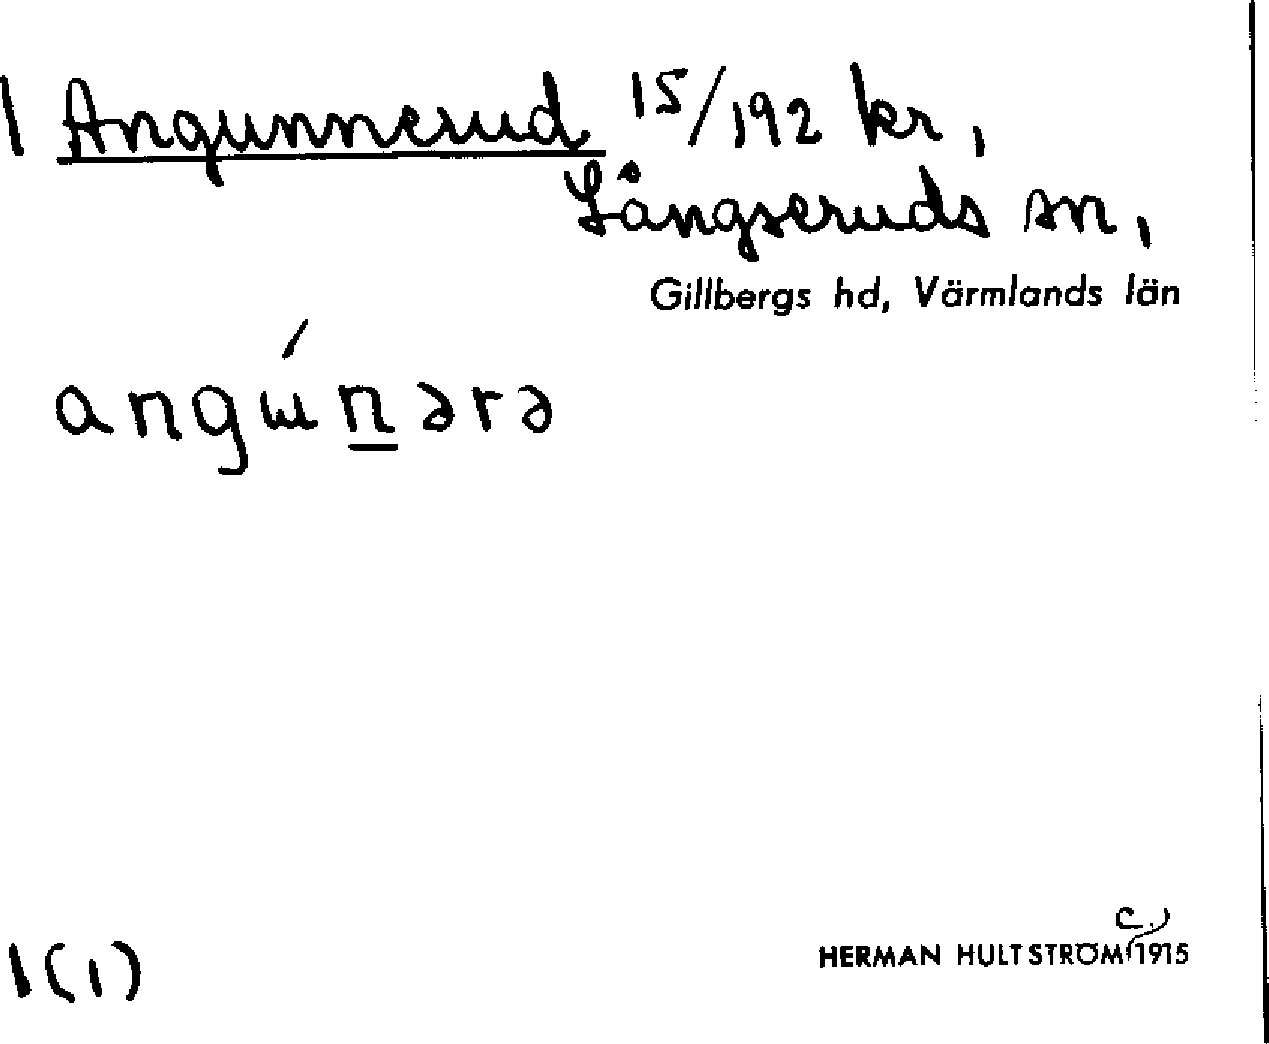 1 Angunnerud 15/192 kr,
Långseruds sn,
Gillbergs hd, Värmlands län
angɯ́n̲ərə
c.
HERMAN HULTSTRÖM 1915
1(1)